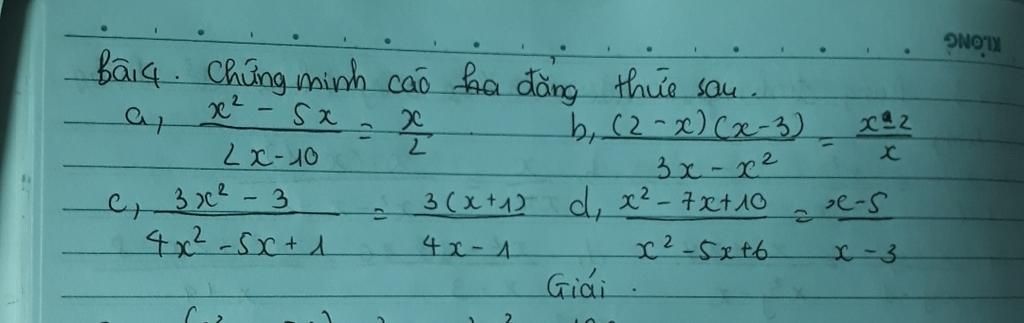 KLONG
Bài 4. Chứng minh các đẳng thức sau.
a, (x² - 5x)/(2x - 10) = x/2 b, ((2 - x)(x - 3))/(3x - x²) = (x - 2)/x
c, (3x² - 3)/(4x² - 5x + 1) = (3(x + 1))/(4x - 1) d, (x² - 7x + 10)/(x² - 5x + 6) = (x - 5)/(x - 3)
Giải.